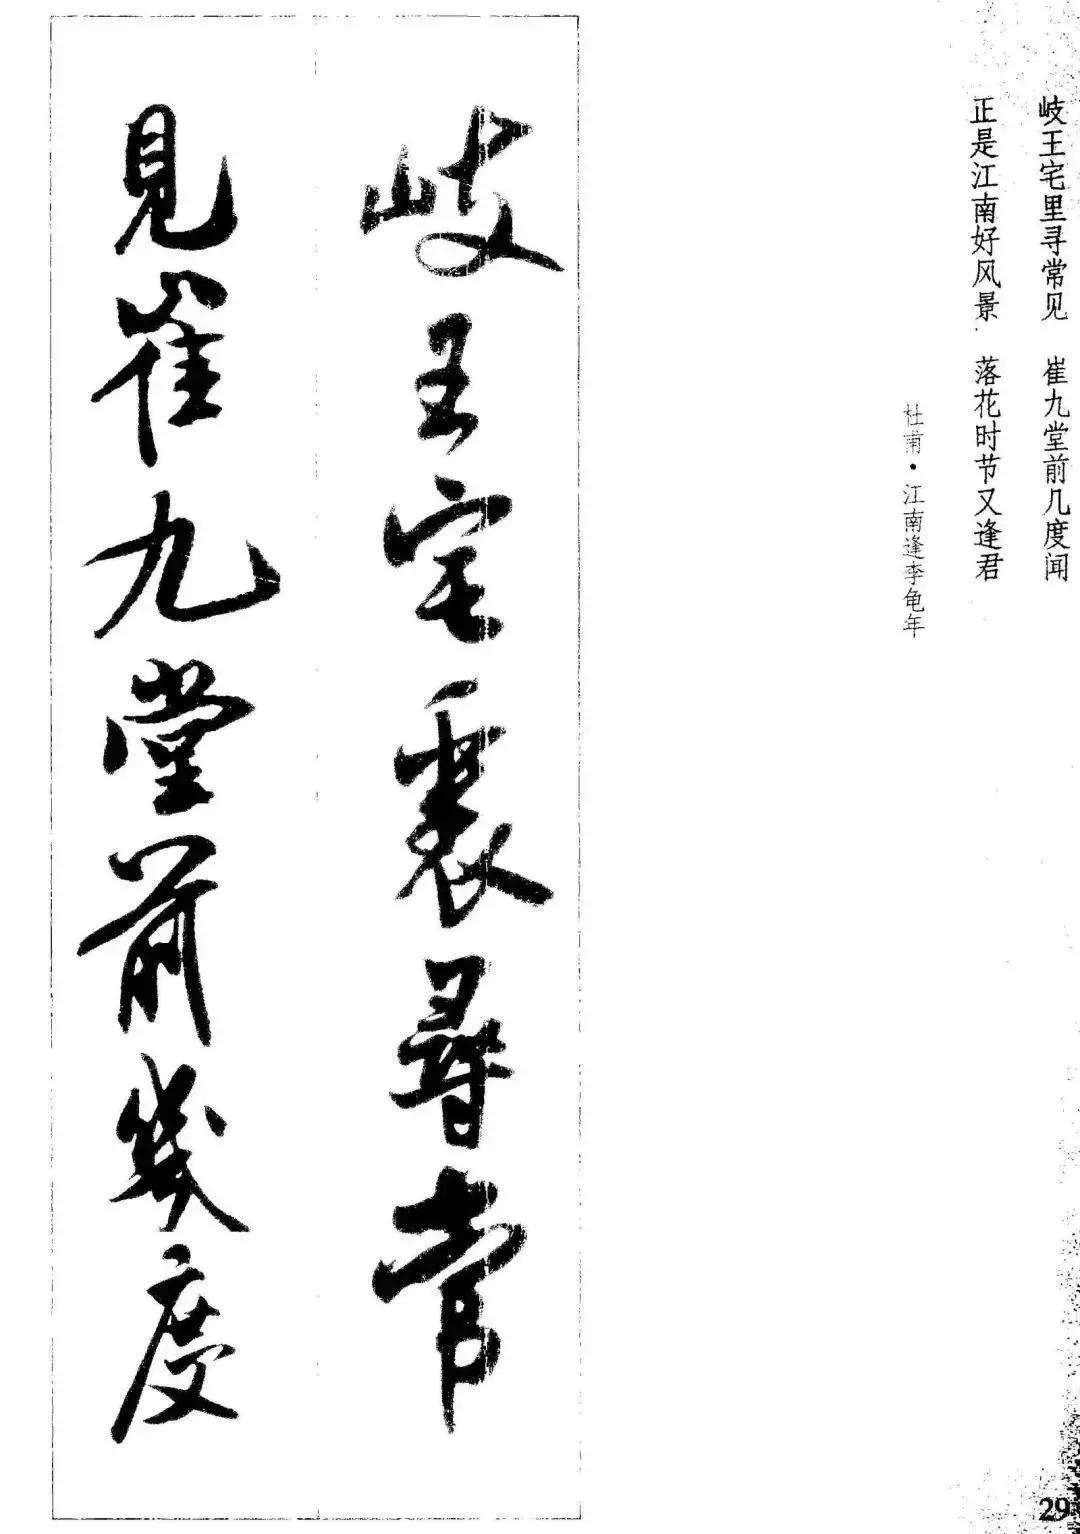 岐王宅里寻常见 崔九堂前几度闻
正是江南好风景 落花时节又逢君
杜甫·江南逢李龟年
岐王宅裏尋常
見崔九堂前幾度
29